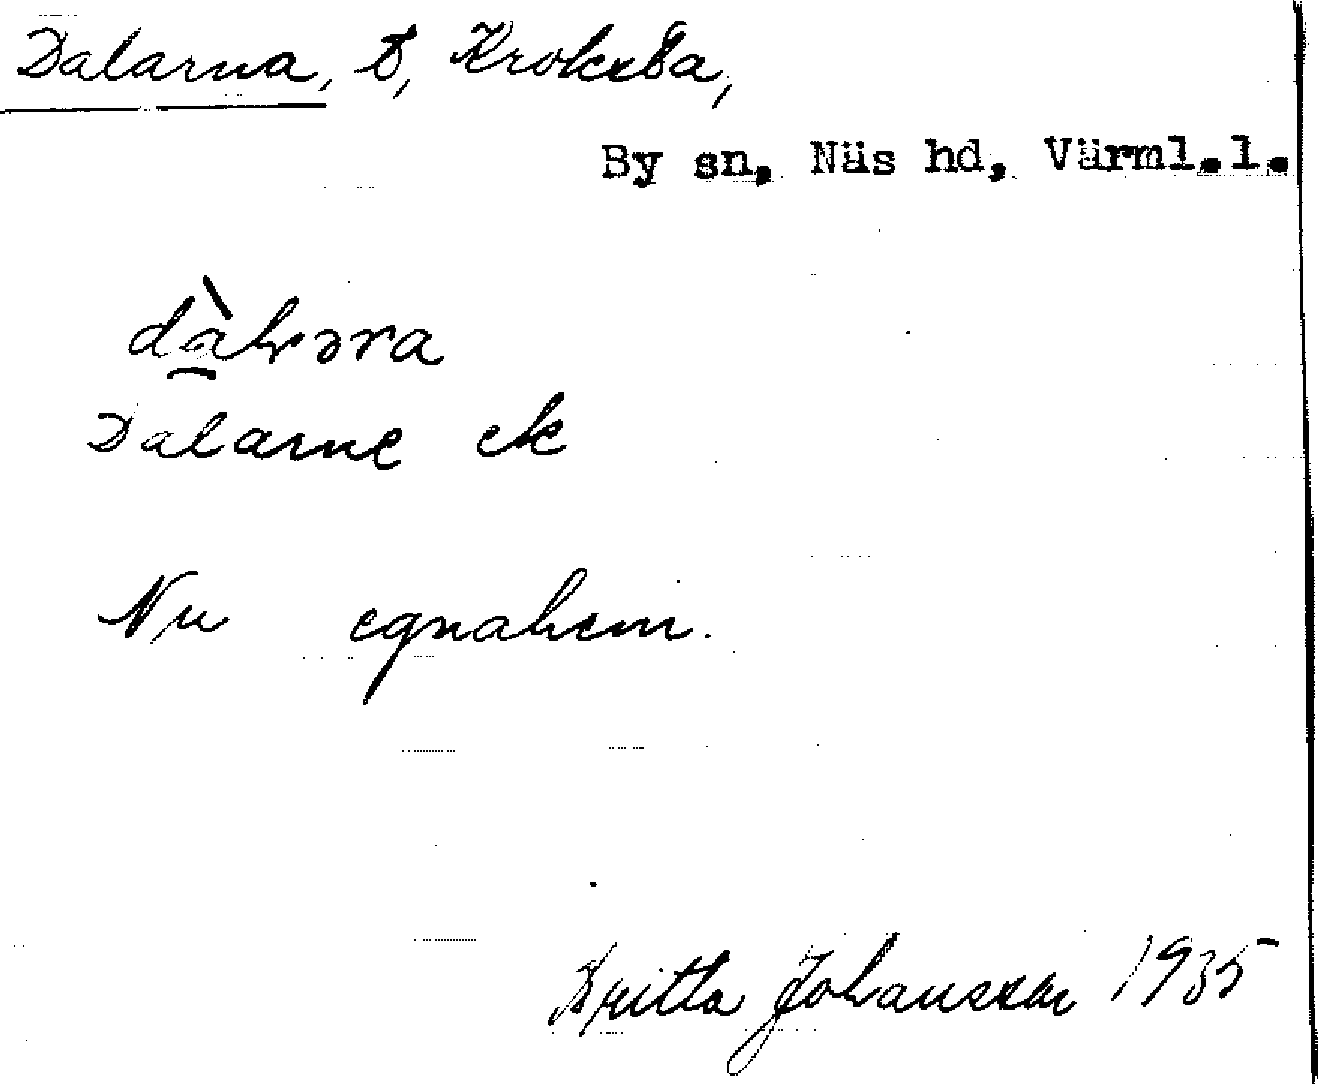 Dalarna, t, Krokeba,
By sn, Näs hd, Värml.l.
dàlɽəra
Dalarne ek
Nu egnahem.
Britta Johansson 1935